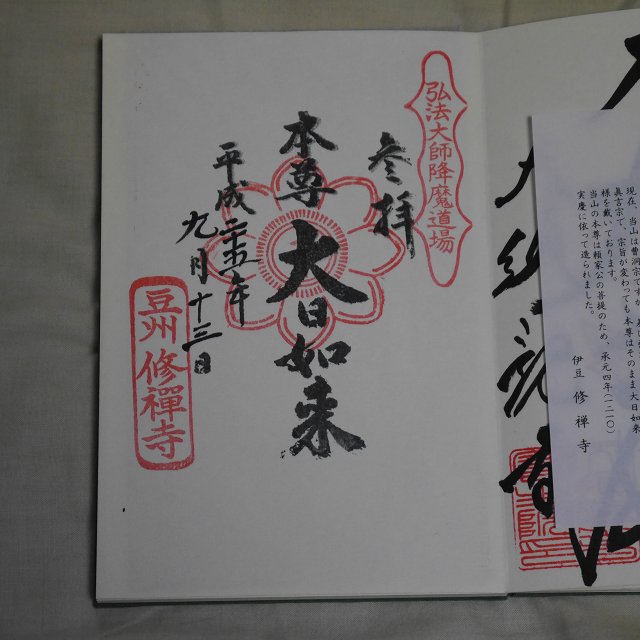 弘法大師降魔道場
参拝
本尊 大日如来
平成二十五年
九月十三日
豆州 修禅寺
現在、当山は曹洞宗です
真言宗で、宗旨が変わっても本尊はそのまま大日如来
様を戴いております。
当山の本尊は頼家公の菩提のため、承元四年(一二一〇)
実慶に依って造られました。
伊豆 修禅寺